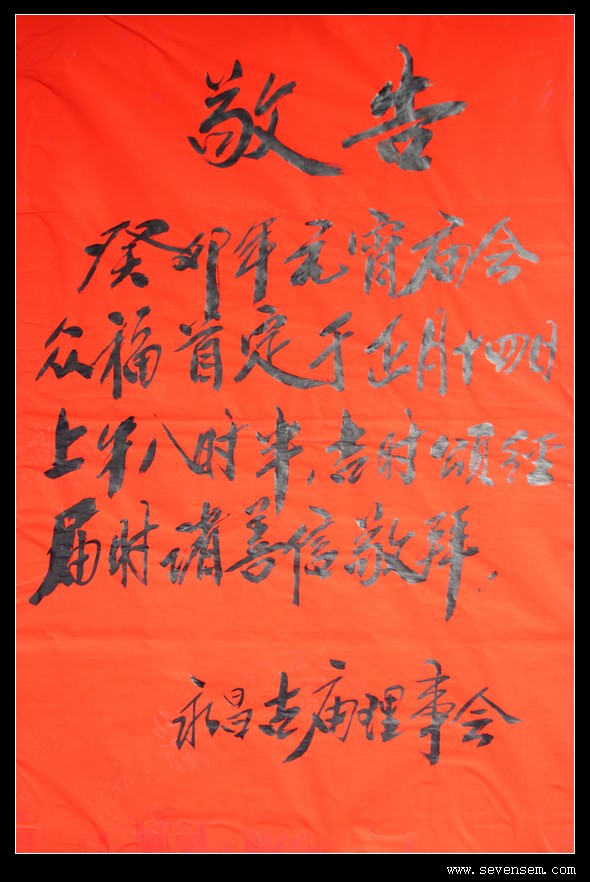 敬告
癸卯年元宵庙会
众福首定于正月十四日
上午八时半,吉时颂经
届时诸善信敬拜.
永昌古庙理事会
www.sevensem.com